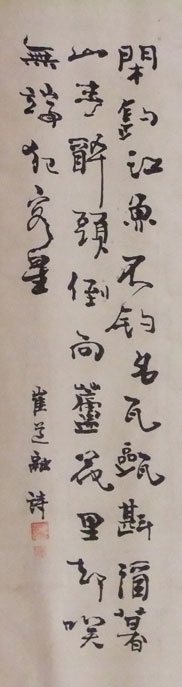 閑釣江魚不釣名瓦甌斟酒暮
山青醉頭倒向蘆花里却笑
無端犯客星
崔道融詩